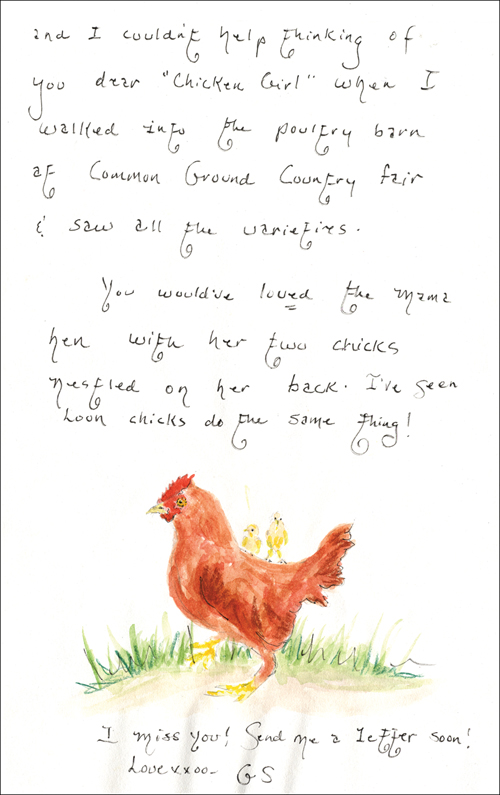 and I couldn't help thinking of
you dear "Chicken Girl" when I
walked into the poultry barn
at Common Ground Country fair
& saw all the varieties.
You would've loved the mama
hen with her two chicks
nestled on her back. I've seen
Loon chicks do the same thing!
I miss you! Send me a letter soon!
Love xxoo- GS